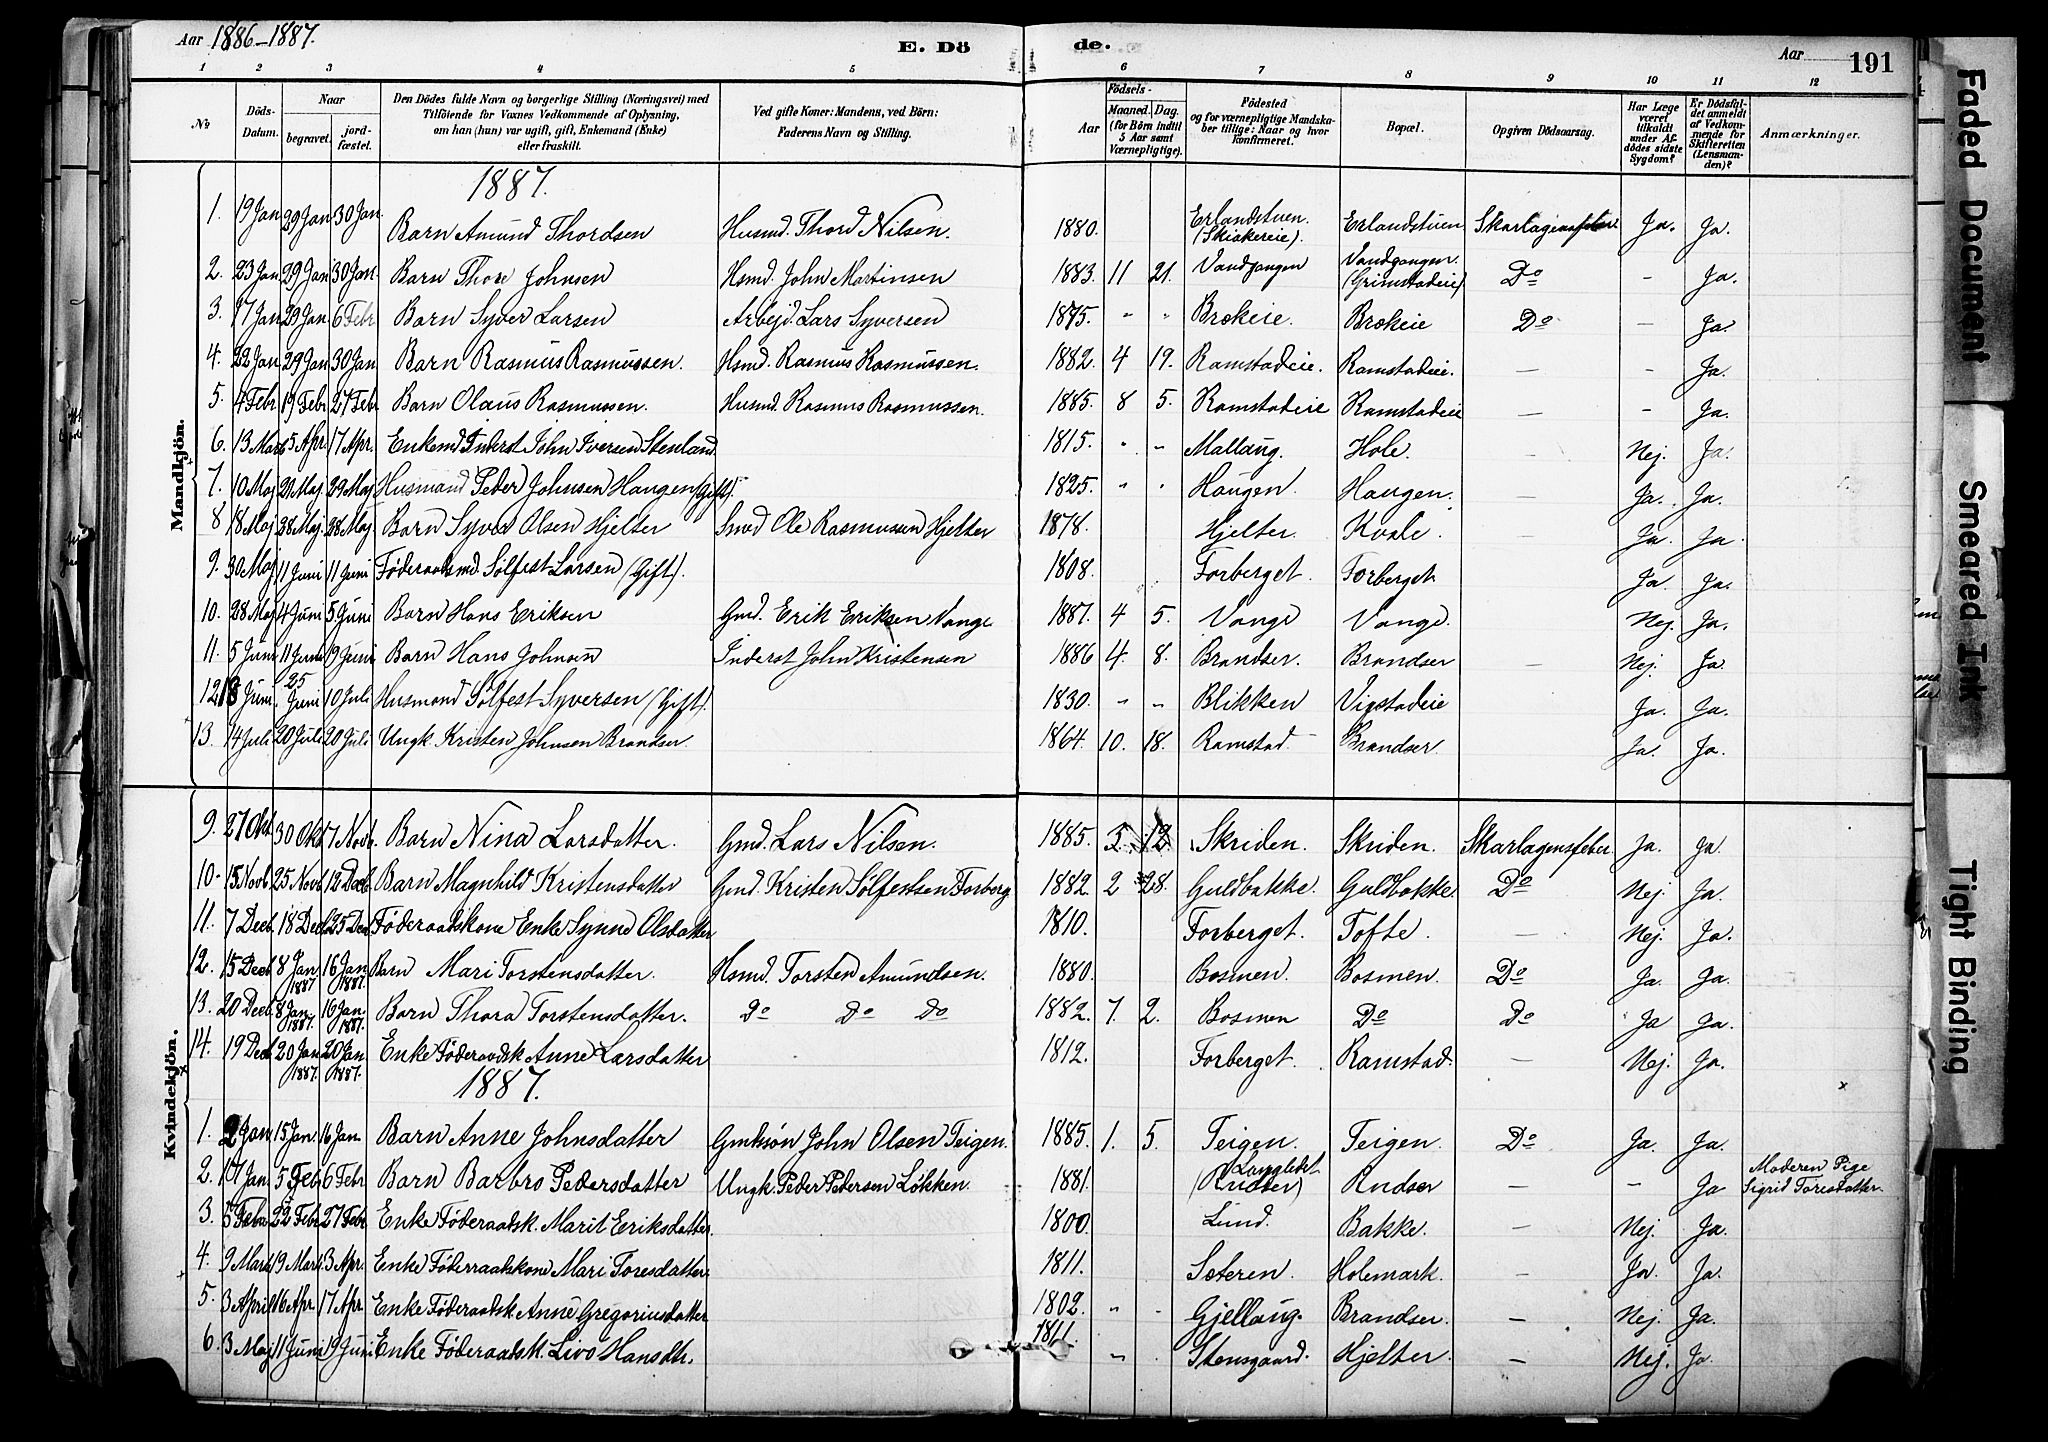 Aar 1886-1887.
E. Dö de.
Aar 191
1 2 3 4 5 6 7 8 9 10 11 12
No
Döds-Datum.
Naar begravet. jord-fæstet.
Den Dödes fulde Navn og borgerlige Stilling (Næringsvei) med Tilföiende for Voxnes Vedkommende af Oplysning, om han (hun) var ugift, gift, Enkemand (Enke) eller fraskilt.
Ved gifte Koner: Mandens, ved Börn: Faderens Navn og Stilling.
Födsels-
Aar Maaned. Dag. (for Börn indtil 5 Aar samt Værnepligtige).
Födested og for værnepligtige Mandskaber tillige: Naar og hvor konfirmeret.
Bopæl.
Opgiven Dödsaarsag.
Har Læge været tilkaldt under Afdödes sidste Sygdom?
Er Dödsfaldet anmeldt af Vedkommende for Skifteretten (Lensmanden)?
Anmærkninger.
Mandkjön.
1887.
1. 19 Jan 29 Jan 30 Jan. Barn Amund Thordsen Husmd. Thord Nilsen. 1880. Erlandstuen. (Skiakereie). Erlandstuen Skarlagensfeber Ja. Ja.
2. 23 Jan 29 Jan 30 Jan. Barn Thore Johnsen Hsmd. John Martinsen 1883. 11 21. Vandgangen Vandgangen (Grimstadeie) Do - Ja.
3. 17 Jan 29 Jan 6 Febr Barn Syver Larsen Arbejd. Lars Syversen 1875. " " Brekeie. Brekeie Do - Ja.
4. 22 Jan 29 Jan 30 Jan. Barn Rasmus Rasmussen. Hsmd. Rasmus Rasmussen. 1882. 4 19. Ramstadeie. Ramstadeie. - - Ja.
5. 4 Febr 19 Febr 27 Febr. Barn Olaus Rasmussen. Husmd. Rasmus Rasmussen. 1885. 8 5. Ramstadeie Ramstadeie - - Ja.
6. 13 Mars 5 Apr. 17 Apr. Enkemd Inderst John Iversen Stenland. 1815. " " Mallaug. Hole. Nej. Ja.
7. 10 Maj 21 Maj 29 Maj Husmand Peder Johnsen Haugen (Gift). 1825. " " Haugen. Haugen. - Ja. Ja.
8 18 Maj 28 Maj. 28 Maj Barn Syver Olsen Hjelter Smed Ole Rasmussen Hjelter 1878. Hjelter. Kvale. - Ja. Ja.
9. 30 Maj 11 Juni 11 Juni Føderaadsmd. Sølfest Larsen (Gift). 1808. Forberget. Forberget - Ja Ja.
10. 28 Maj 4 Juni 5 Juni Barn Hans Eriksen Gmd. Erik Eriksen Vange 1887. 4 5. Vange Vange. - Nej. Ja.
11. 5 Juni 11 Juni 19 Juni Barn Hans Johnsen Inderst John Kristensen 1886 4. 8. Brandser. Brandser - Nej. Ja
12. 13 Juni 25 Juni 10 Juli Husmand Sølfest Syversen (Gift). 1830. " " Blikken Vigstadeie Ja. Ja.
13. 14 Juli 20 Juli 20 Juli Ungk. Kristen Johnsen Brandser. 1864. 10. 18. Ramstad. Brandser. Ja. Ja.
Kvindekjön.
9. 27 Okt. 30 Okt 7 Novb. Barn Nina Larsdatter. Gmd. Lars Nilsen. 1885. 5. 12. Skriden. Skriden. Skarlagensfeber Ja. Ja.
10. 15 Novb. 25 Novb 12 Decb. Barn Magnhild Kristensdatter Gmd. Kristen Sølfestsen Forberg 1882 2 28. Guldbakke. Guldbakke. Do Nej. Ja.
11. 7 Decb. 18 Decb. 25 Dec Føderaadskone Enke Synne Olsdatter 1810. Forberget. Tofte. - Nej. Ja.
12. 15 Decb. 8 Jan. 1887 16 Jan 1887. Barn Mari Torstensdatter. Hsmd. Torsten Amundsen. 1880. Bosmen. Bosmen. Do Ja. Ja.
13. 20 Decb. 8 Jan. 1887. 16 Jan. 1887. Barn Thora Torstensdatter. Do Do Do 1882. 7. 2. Bosmen Do Do Ja Ja.
14. 19 Decb 20 Jan 1887. 20 Jan. 1887. Enke Føderaadsk Anne Larsdatter 1812. Forberget. Ramstad. - Nej. Ja.
1887.
1. 2 Jan. 15 Jan. 16 Jan. Barn Anne Johnsdatter Gmdsøn John Olsen Teigen. 1885. 1. 5. Teigen. Teigen. Do Ja. Ja.
2. 17 Jan 5 Febr 6 Febr Barn Barbro Pedersdatter Ungk. Peder Pedersen Løkken. 1881. (Rudser) Rudser - - Ja Moderen Pige Sigrid Toresdatter.
3. 5 Febr 22 Febr 27 Febr. Enke Føderaadsk. Marit Eriksdatter. 1800. Lund. Bakke. - Nej. Ja.
4. 9 Mars 19 Mars. 3 Apr. Enke Føderaadskone Mari Toresdatter. 1811. Seteren. Holemark. - Ja. Ja.
5. 3 April 16 Apr. 17 Apr. Enke Føderaadsk Anne Gregoriusdatter 1802. " Gjellaug. Brandser. - Nej. Ja.
6. 3 Maj 11 Juni 19 Juni Enke Føderaadsk. Livo Hansdtr. 1811. " Stensgaard. Hjelter. - Nej. Ja.
Faded Document
Smeared Ink
Tight Binding